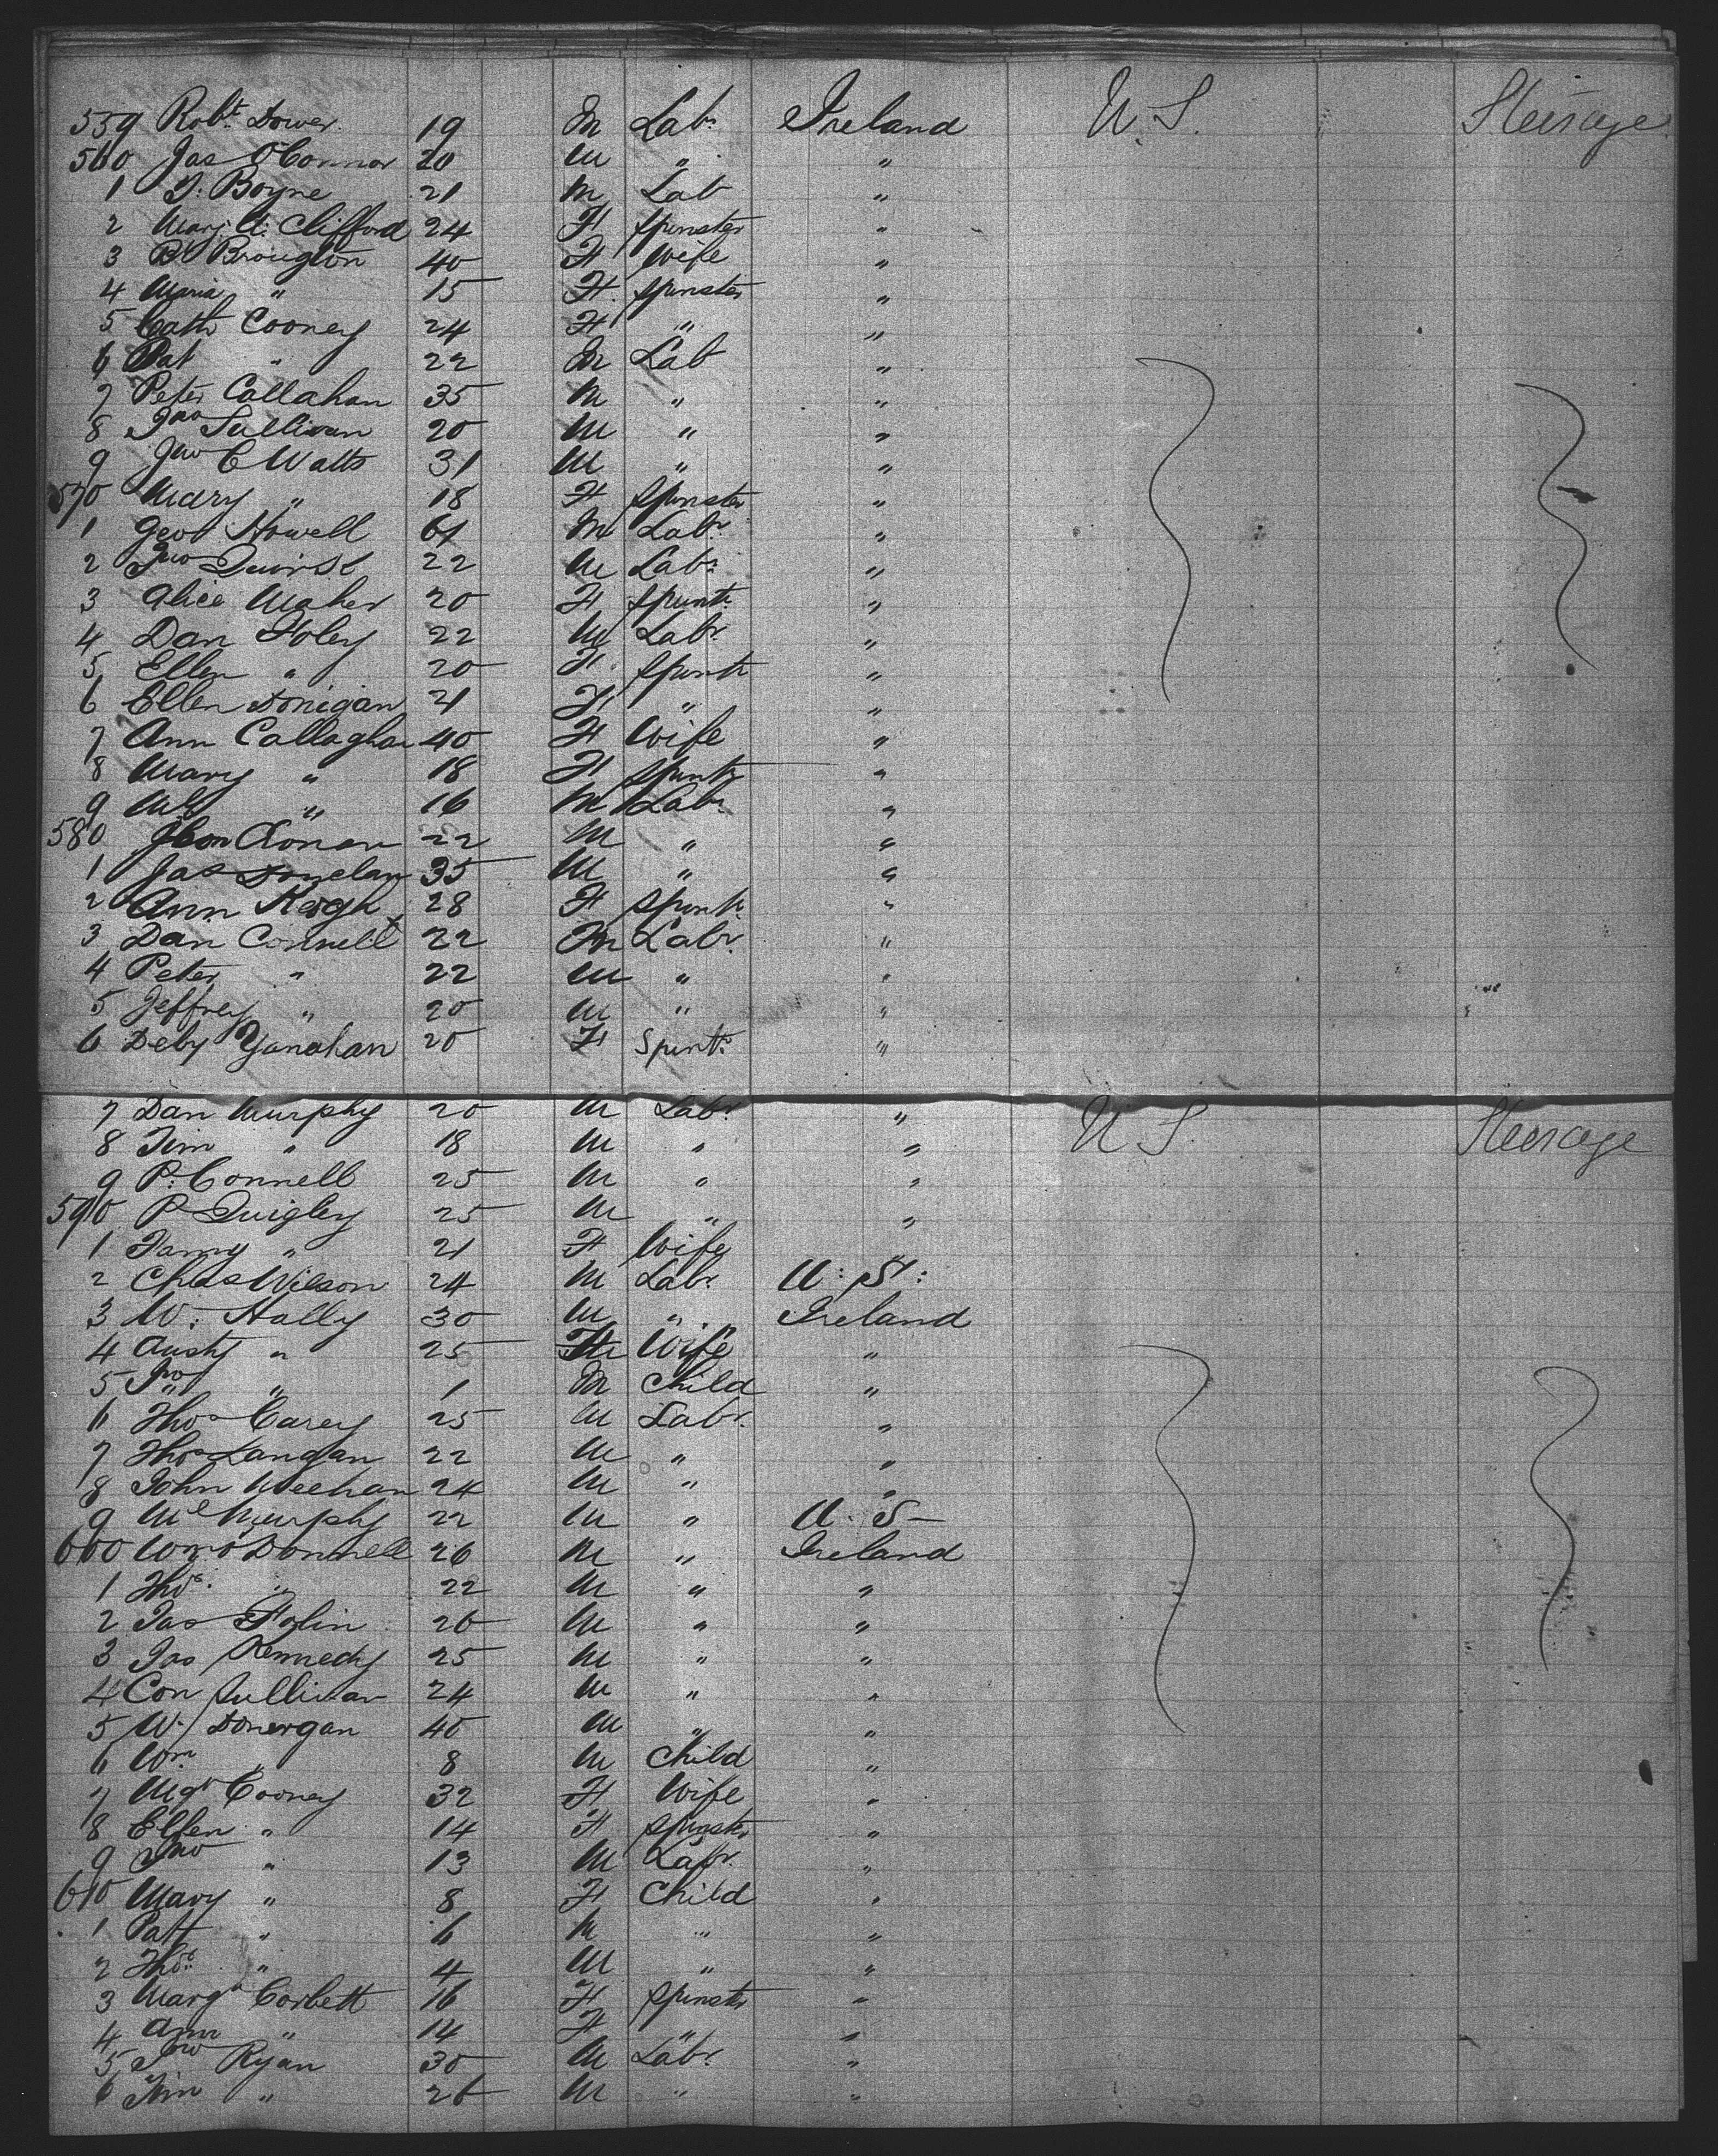 559 Robt. Dower. 19 M Labr. Ireland U. S. Steerage
560 Jas O'Connor 20 M " "
1 T. Boyne 21 M Lab "
2 Mary A. Clifford 24 F Spinster "
3 Bt Brougton 40 F Wife "
4 Maria " 15 F. Spinster "
5 Cath Cooney 24 F " "
6 Pat " 22 M Lab "
7 Peter Callahan 35 M " "
8 Jno Sullivan 20 M " "
9 Jno C Watts 31 M " "
570 Mary " 18 F Spinster "
1 Geo Howell 61 M Labr. "
2 Jno 22 M Labr. "
3 Alice Maher 20 F Spinstr. "
4 Dan Foley 22 M Labr. "
5 Ellen " 20 F. Spinstr "
6 Ellen Donigan 21 F " "
7 Ann Callaghan 40 F Wife "
8 Mary " 18 F Spinstr "
9 Ml " 16 M Labr. "
580 22 M " "
1 Jas Donelan 35 M " "
2 Ann Keogh 28 F Spinstr. "
3 Dan Connell 22 M Labr. "
4 Peter " 22 M " "
5 Jeffrey " 20 M " "
6 Deby Yanahan 20 F Spinstr. "
7 Dan Murphy 20 M Labr. " U S. Steerage
8 Jim " 18 M " "
9 P. Connell 25 M " "
590 P Quigley 25 M " "
1 Fanny " 21 F Wife "
2 Chas Wilson 24 M Labr. U. S.
3 W. Hally 30 M " Ireland
4 " 25 F Wife "
5 Jno " 1 M Child "
6 Thos Carey 25 M Labr. "
7 Thos Langan 22 M " "
8 John Meehan 24 M " "
9 Ml Murphy 22 M " U. S
600 Wm O'Donnell 26 M " Ireland
1 Thos. " 22 M " "
2 Jas 26 M " "
3 Jas Kennedy 25 M " "
4 Con Sullivan 24 M " "
5 W. Donergan 40 M " "
6 Wm " 8 M Child "
7 Mgt Cooney 32 F Wife "
8 Ellen " 14 F Spinster "
9 Jno " 13 M Labr. "
610 Mary " 8 F Child "
1 Patt " 6 M " "
2 Thos " 4 M " "
3 Margt Corbett 16 F Spinster "
4 Ann " 14 F " "
5 Jno Ryan 30 M Labr. "
6 Jim " 26 M " "